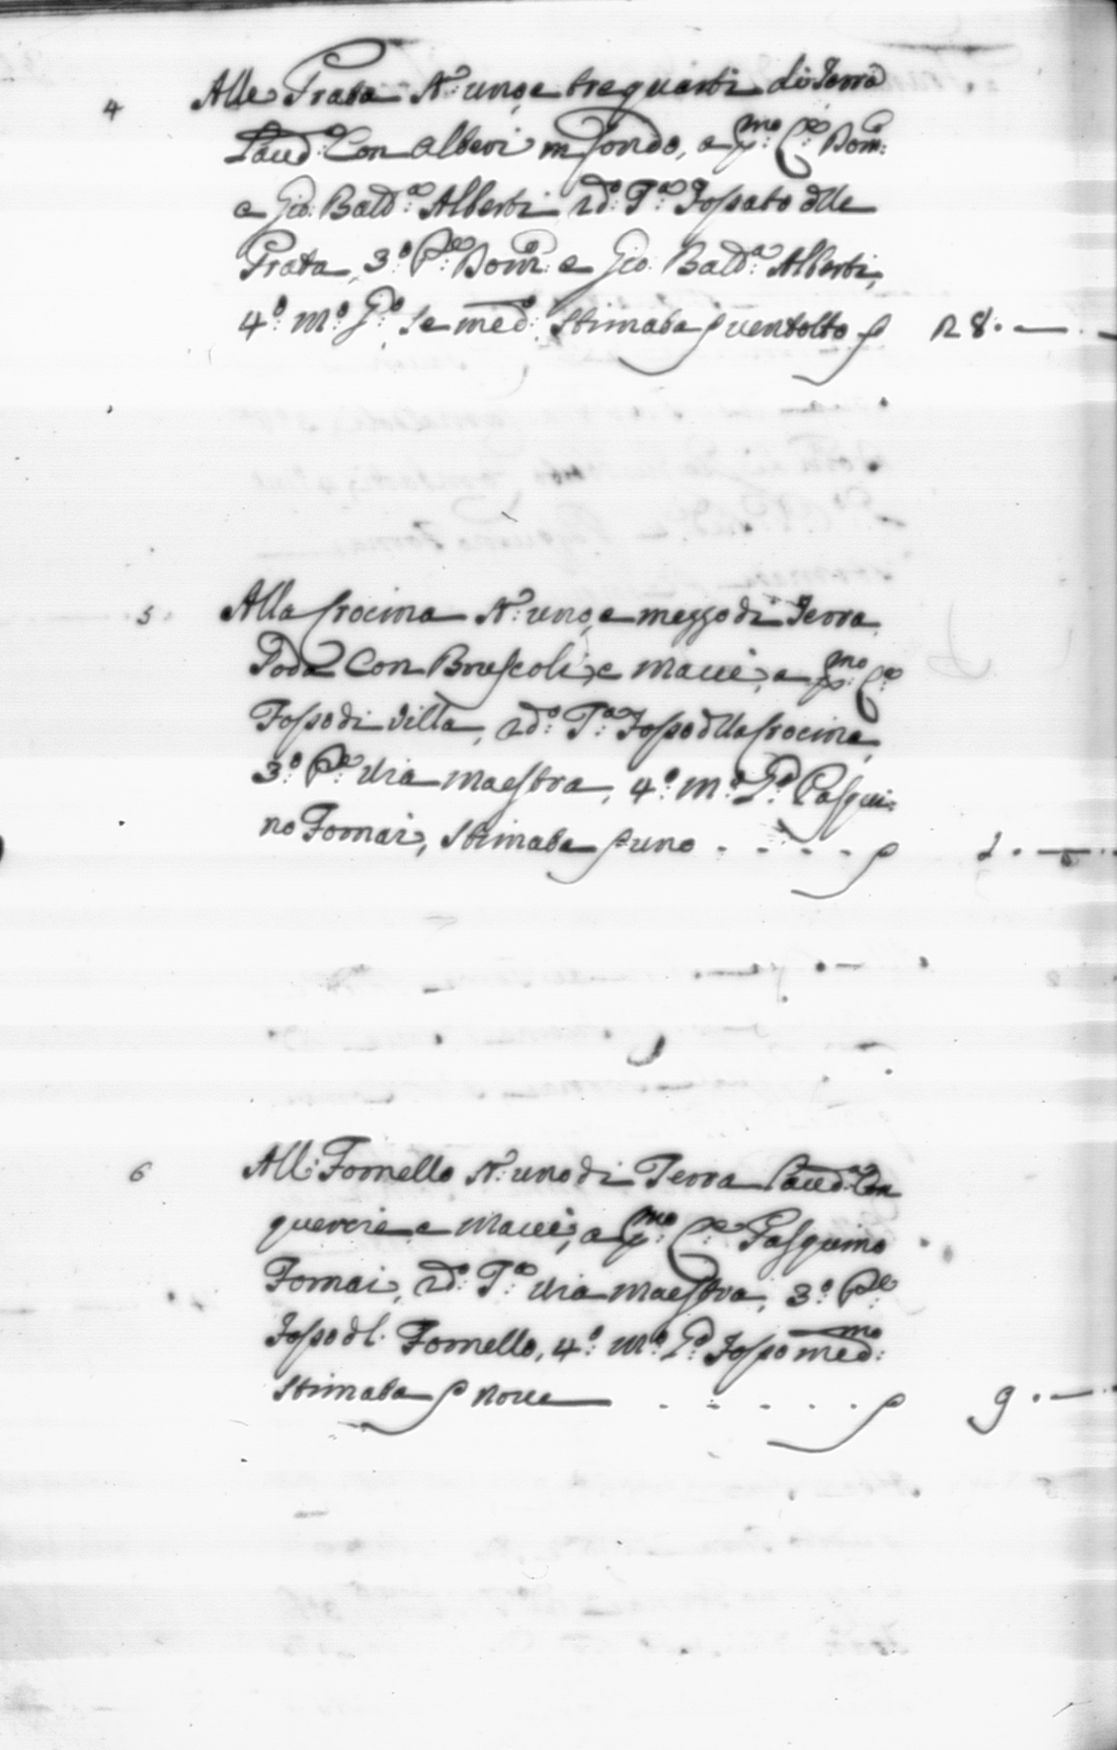 4 Alle Prata N.º uno, e tre quarti di Terra
Laud: Con alberi in fondo, a p.mo C.º Dom:
e Gio: Batt.a Alberti 2d.º T.a Fossato dlle
Prata, 3.º P.e Dom: e Gio: Batt.a Alberti,
4.º M.º G.º se med.º: Stimata s ventotto s 28. —
5 Alla Crocina N.º uno, e mezzo di Terra
Soda Con Bruscoli, e Macie, a p.mo C.º
Fosso di Villa, 2d.º T.a Fosso dlla Crocina,
3.º P.e Via Maestra, 4.º M.º G.º Pasqui:
no Fornai, Stimata s uno . . . . s 1. —
6 All: Fornello N.º uno di Terra Laud.a Con
quercie, e Macie, a p.mo C.º Pasquino
Fornai, 2d.º T.a Via Maestra, 3.º P.e
Fosso dl. Fornello, 4.º M.º G.º Fosso med.mo:
Stimata s nove . . . . . s 9. —